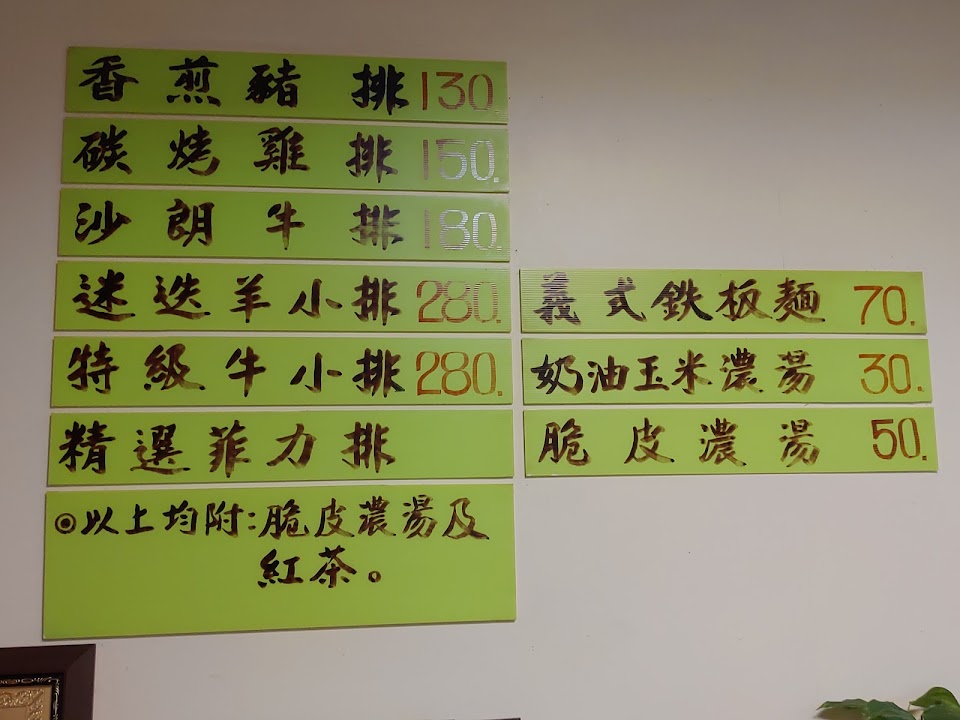 香煎豬排130.
碳烤雞排150.
沙朗牛排180.
迷迭羊小排280.
特級牛小排280.
精選菲力排
◎以上均附:脆皮濃湯及
紅茶。
義式鉄板麵 70.
奶油玉米濃湯 30.
脆皮濃湯 50.